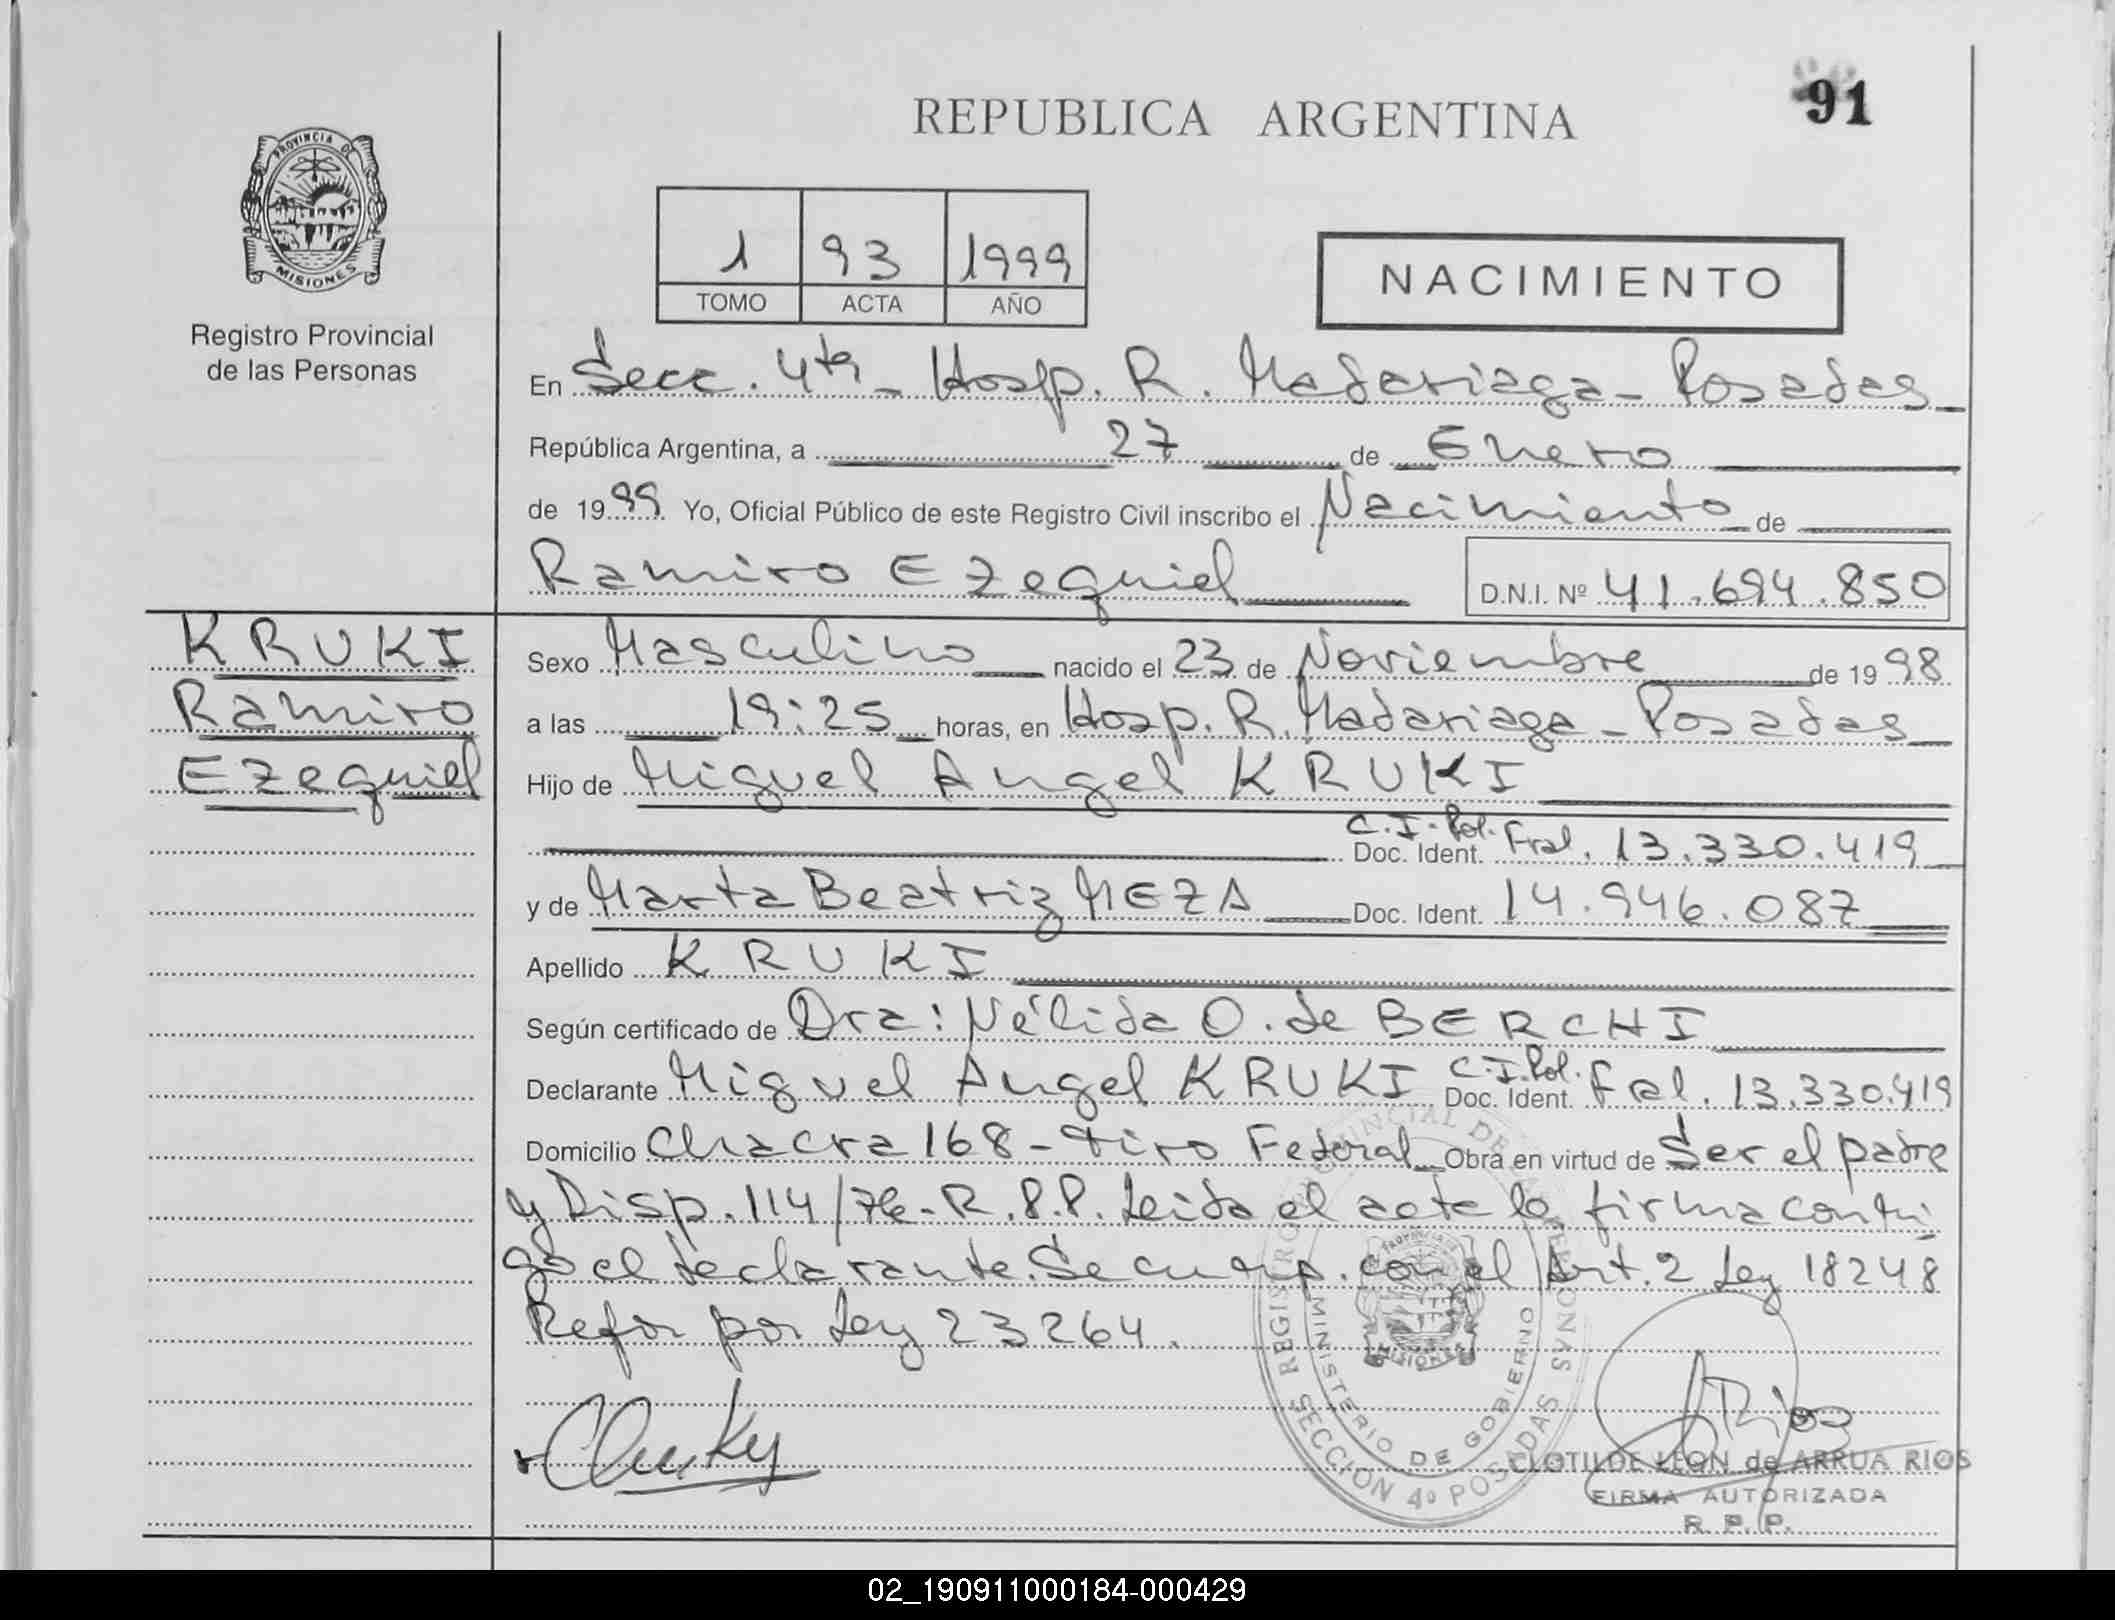 REPUBLICA ARGENTINA
91
PROVINCIA DE
MISIONES
Registro Provincial
de las Personas
1 93 1999
TOMO ACTA AÑO
NACIMIENTO
En Secc. 4ta - Hosp. R. Madariaga - Posadas
República Argentina, a 27 de Enero
de 1999 Yo, Oficial Público de este Registro Civil inscribo el Nacimiento de
Ramiro Ezequiel D.N.I. Nº 41.694.850
KRUKI
Ramiro
Ezequiel
Sexo Masculino nacido el 23 de Noviembre de 1998
a las 19:25 horas, en Hosp. R. Madariaga - Posadas
Hijo de Miguel Angel KRUKI
C.I. Pol.
Doc. Ident. Fral. 13.330.419
y de Marta Beatriz MEZA Doc. Ident. 14.946.087
Apellido KRUKI
Según certificado de Dra: Nélida O. de BERCHI
Declarante Miguel Angel KRUKI C.I. Pol. Doc. Ident. Fral. 13.330.419
Domicilio Chacra 168 - Tiro Federal Obra en virtud de Ser el padre
y Disp. 114/76 - R.P.P. Leida el acta la firma conmi
go el declarante. Se cump. con el Art. 2 Ley 18248
Refor por Ley 23264.
REGISTRO PROVINCIAL DE LAS PERSONAS
MINISTERIO DE GOBIERNO
SECCION 4º POSADAS
MISIONES
CLOTILDE LEON de ARRUA RIOS
FIRMA AUTORIZADA
R. P. P.
02_190911000184-000429